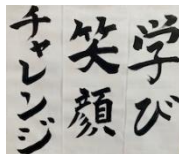 学び
笑顔
チャレンジ